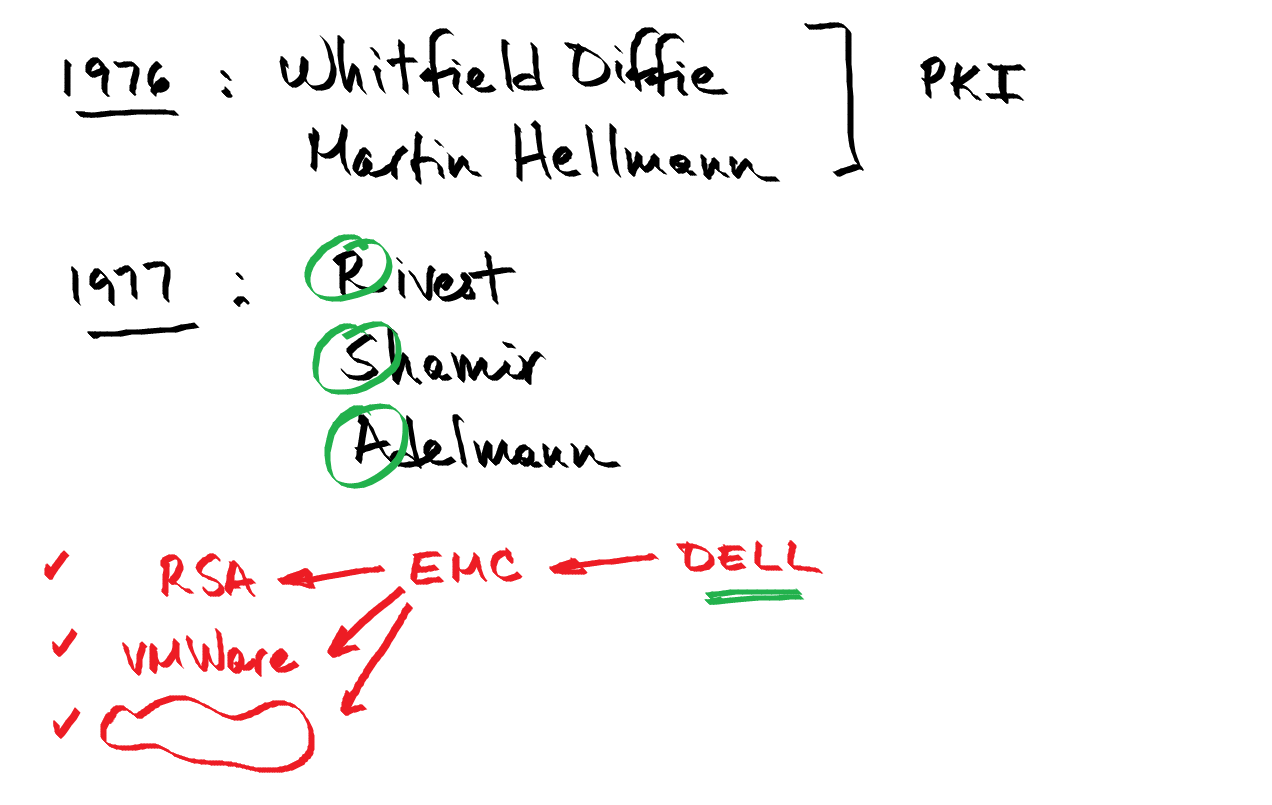 1976 : Whitfield Diffie
Martin Hellmann
PKI
1977 : Rivest
Shamir
Adelmann
RSA ← EMC ← DELL
VMWare